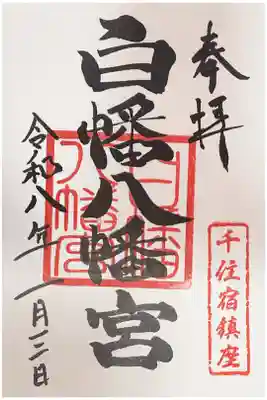 奉拝
白幡八幡宮
白幡八幡宮
千住宿鎮座
令和八年一月三日